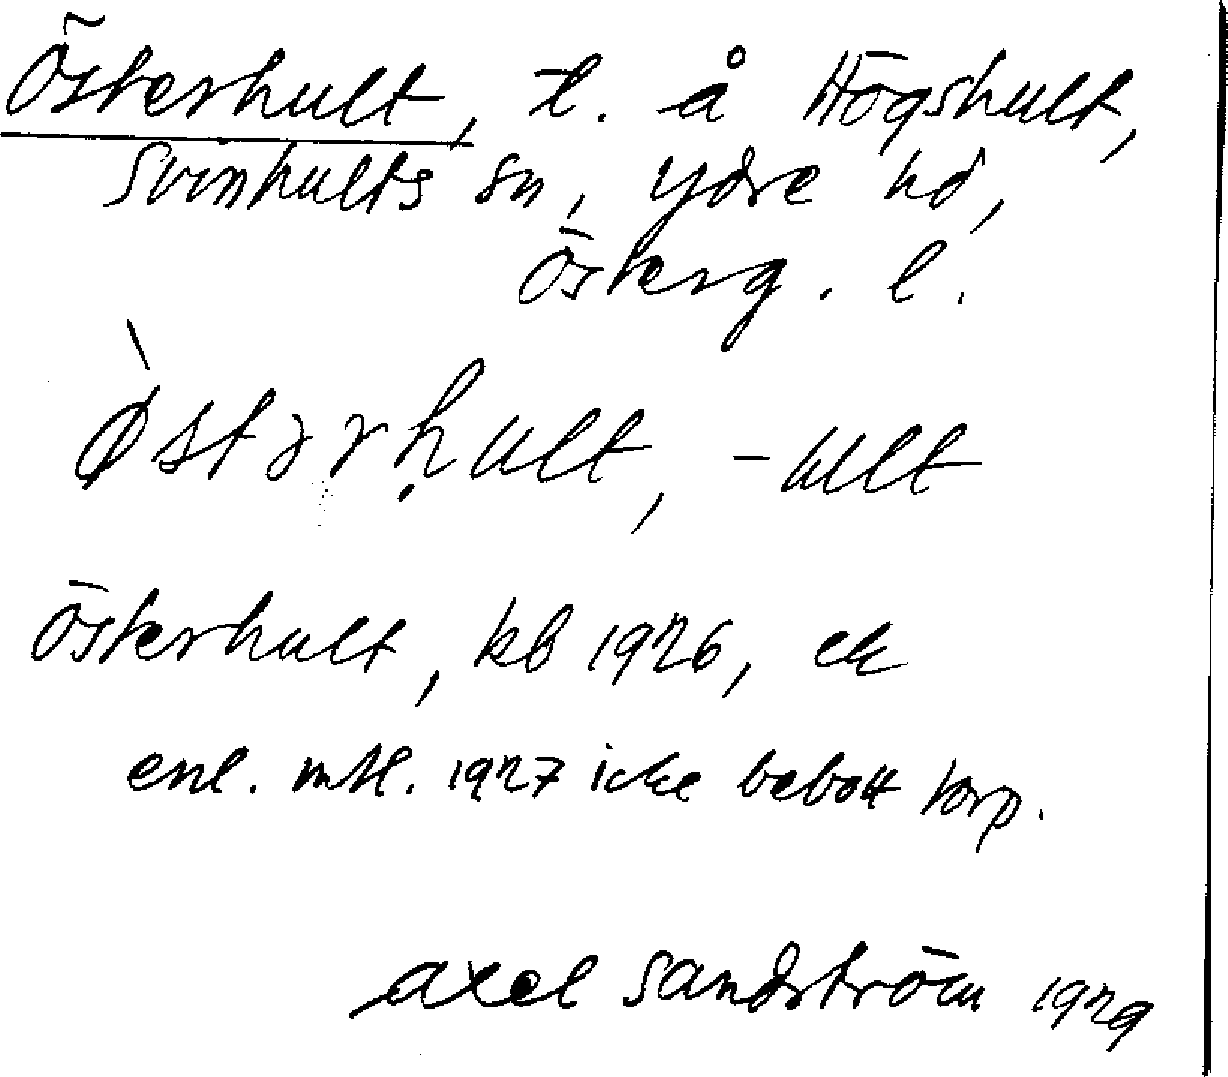 Österhult, t. å Högshult,
Svinhults sn, Ydre hd,
Österg. l.
Østərḥult, -ult
Österhult, kb 1926, ek
enl. mtl. 1927 icke bebott torp.
Axel Sandström 1929